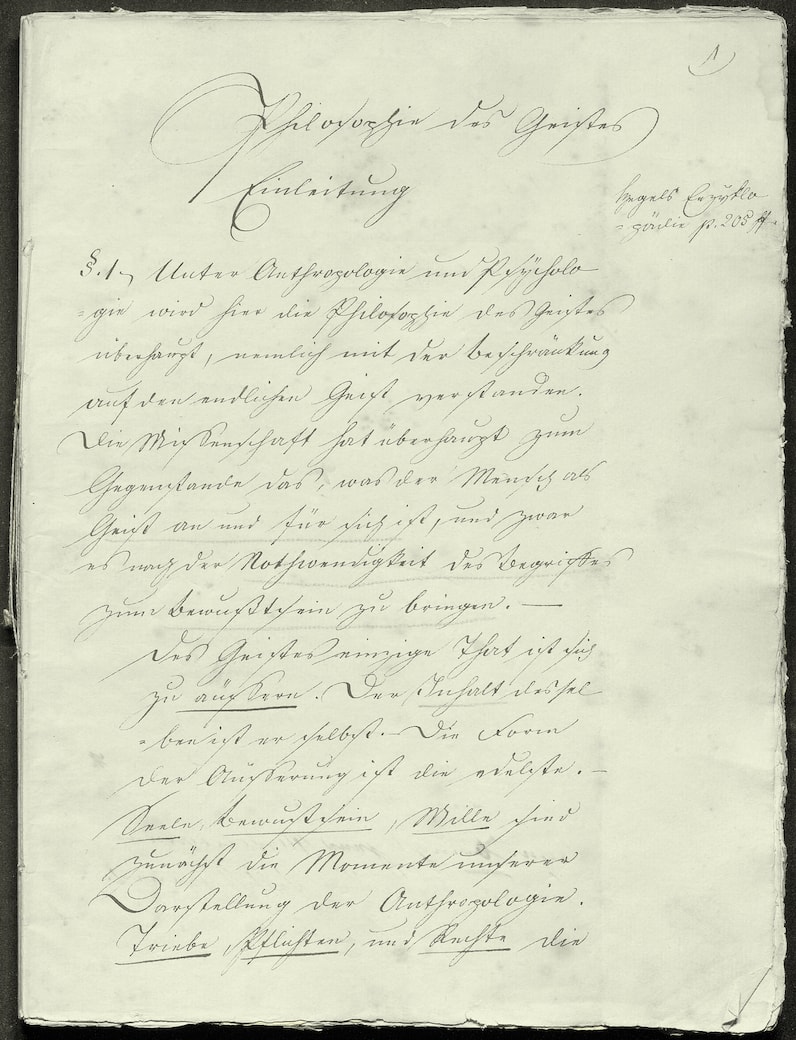 1)
Philosophie des Geistes
Einleitung
Hegels Enzyklo
=pädie p. 205 ff.
§. 1., Unter Anthropologie und Psÿcholo
=gie wird hier die Philosophie des Geistes
überhaupt, nemlich mit der Beschränkung
auf den endlichen Geist verstanden.
Die Wissenschaft hat überhaupt zum
Gegenstande das, was der Mensch als
Geist an und für sich ist, und zwar
es nach der Nothwendigkeit des Begriffes
zum Bewußtsein zu bringen. —
Des Geistes einzige That ist sich
zu äussern. Der Inhalt dessel
=ben ist er selbst. – Die Form
der Äusserung ist die edelste. –
Seele, Bewustsein, Wille sind
zunächst die Momente unserer
Darstellung der Anthropologie.
Triebe, Pflichten, und Rechte die